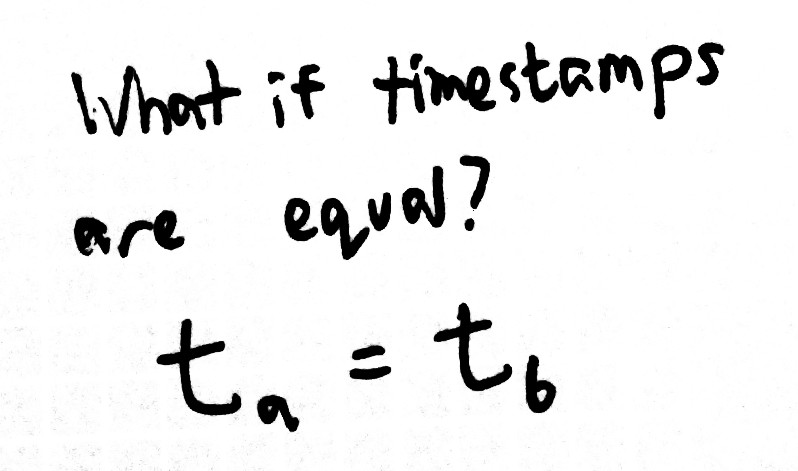 What if timestamps
are equal?
t_a = t_b